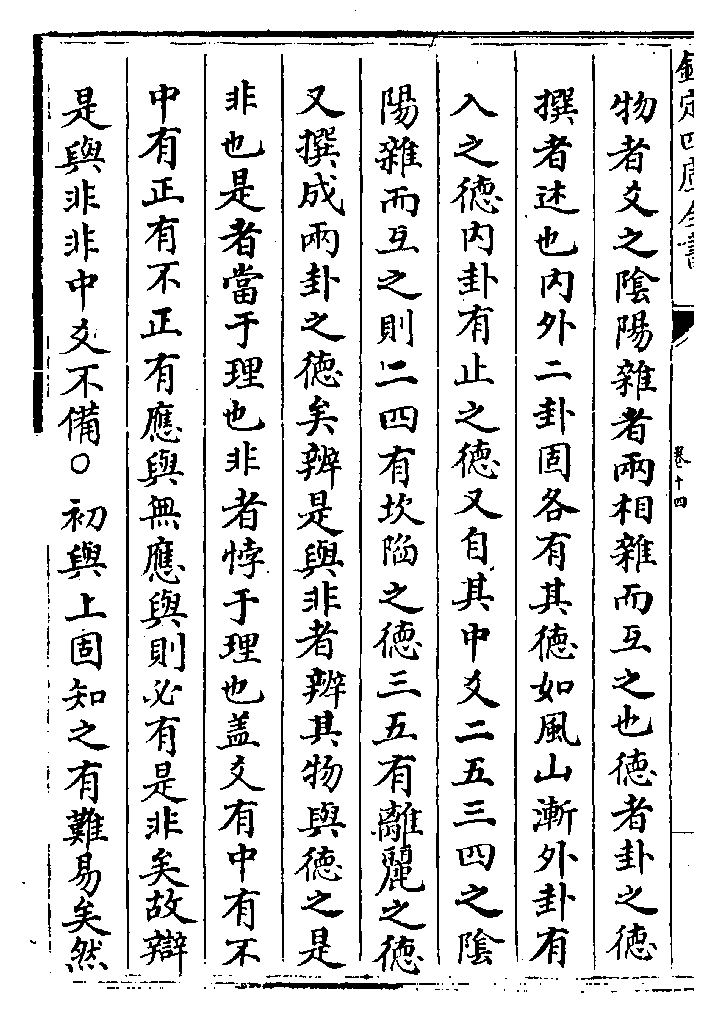 欽定四庫全書
卷十四
物者爻之陰陽雜者兩相雜而互之也德者卦之德
撰者述也内外二卦固各有其德如風山漸外卦有
入之德内卦有止之德又自其中爻二五三四之陰
陽雜而互之則二四有坎陥之德三五有離麗之德
又撰成兩卦之德矣辨是與非者辨其物與德之是
非也是者當于理也非者悖于理也盖爻有中有不
中有正有不正有應與無應與則必有是非矣故辯
是與非非中爻不備○初與上固知之有難易矣然